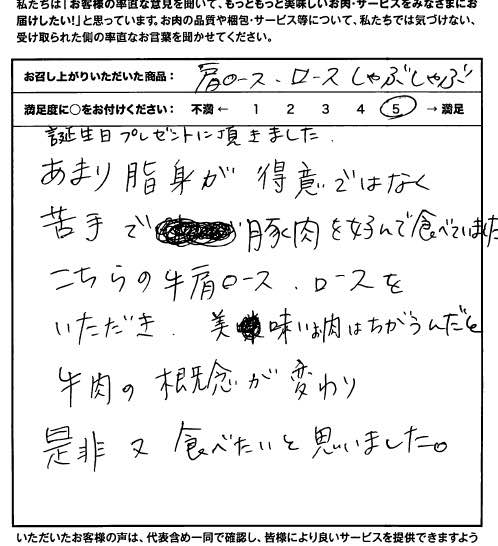 私たちは「お客様の率直な意見を聞いて、もっともっと美味しいお肉・サービスをみなさまにお
届けしたい!」と思っています。お肉の品質や梱包・サービス等について、私たちでは気づけない、
受け取られた側の率直なお言葉を聞かせてください。
お召し上がりいただいた商品： 肩ロース、ロースしゃぶしゃぶ
満足度に○をお付けください： 不満 ← 1 2 3 4 5 → 満足
誕生日プレゼントに頂きました.
あまり脂身が得意ではなく
苦手で 豚肉を好んで食べていました
こちらの牛肩ロース、ロースを
いただき、美味いお肉はちがうんだと
牛肉の概念が変わり
是非又食べたいと思いました。
いただいたお客様の声は、代表含め一同で確認し、皆様により良いサービスを提供できますよう